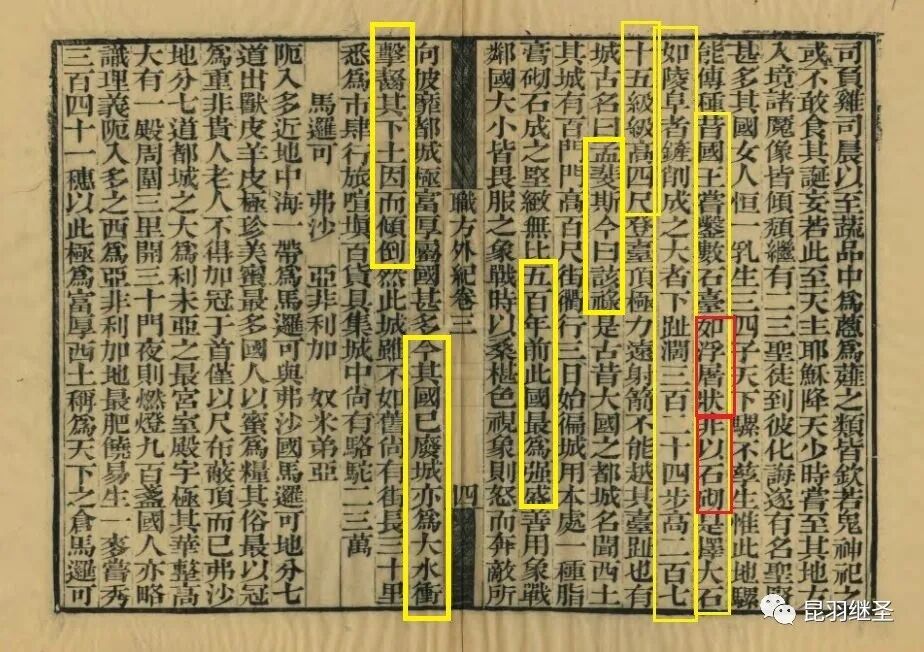 司頁雞司晨以至蔬品中爲蔥爲薤之類皆欽若鬼神祀之
或不敢食其誕妄若此至天主耶穌降天少時嘗至其地方
入境諸魔像皆傾頹繼有二三聖徒到彼化誨遂有名聖賢
甚多其國女人恒一乳生三四子天下騾不孳生惟此地騾
能傳種昔國王嘗鑿數石臺如浮屠狀非以石砌是擇大石
如陵阜者鏟削成之大者下趾濶三百二十四步高二百七
十五級級高四尺登臺頂極力遠射箭不能越其臺趾也有
城古名曰孟斐斯今曰該祿是古昔大國之都城名聞西土
其城有百門門高百尺街衢行三日始徧城用本處一種脂
膏砌石成之堅緻無比五百年前此國最爲强盛善用象戰
鄰國大小皆畏服之象戰時以桑椹色視象則怒而奔敵所
職方外紀卷三 四
向披靡都城極富厚屬國甚多今其國已廢城亦爲大水衝
擊齧其下土因而傾倒然此城雖不如舊尚有街長三十里
悉爲市肆行旅喧塡百貨具集城中尚有駱駝二三萬
馬邏可 弗沙 亞非利加 奴米弟亞
阨入多近地中海一帶爲馬邏可與弗沙國馬邏可地分七
道出獸皮羊皮極珍美蜜最多國人以蜜爲糧其俗最以冠
爲重非貴人老人不得加冠于首僅以尺布蔽頂而已弗沙
地分七道都城之大爲利未亞之最宮室殿宇極其華整高
大有一殿周圍三里開三十門夜則燃燈九百盞國人亦略
識理義阨入多之西爲亞非利加地最肥饒易生一麥嘗秀
三百四十一穗以此極爲富厚西土稱爲天下之倉馬邏可
昆羽继圣